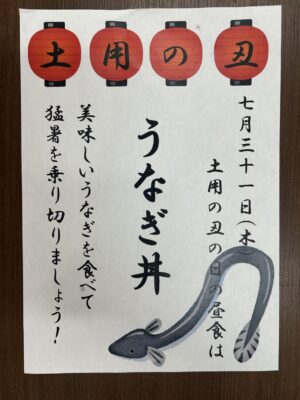 土用の丑
七月三十一日(木)
土用の丑の日の昼食は
うなぎ丼
美味しいうなぎを食べて
猛暑を乗り切りましょう!